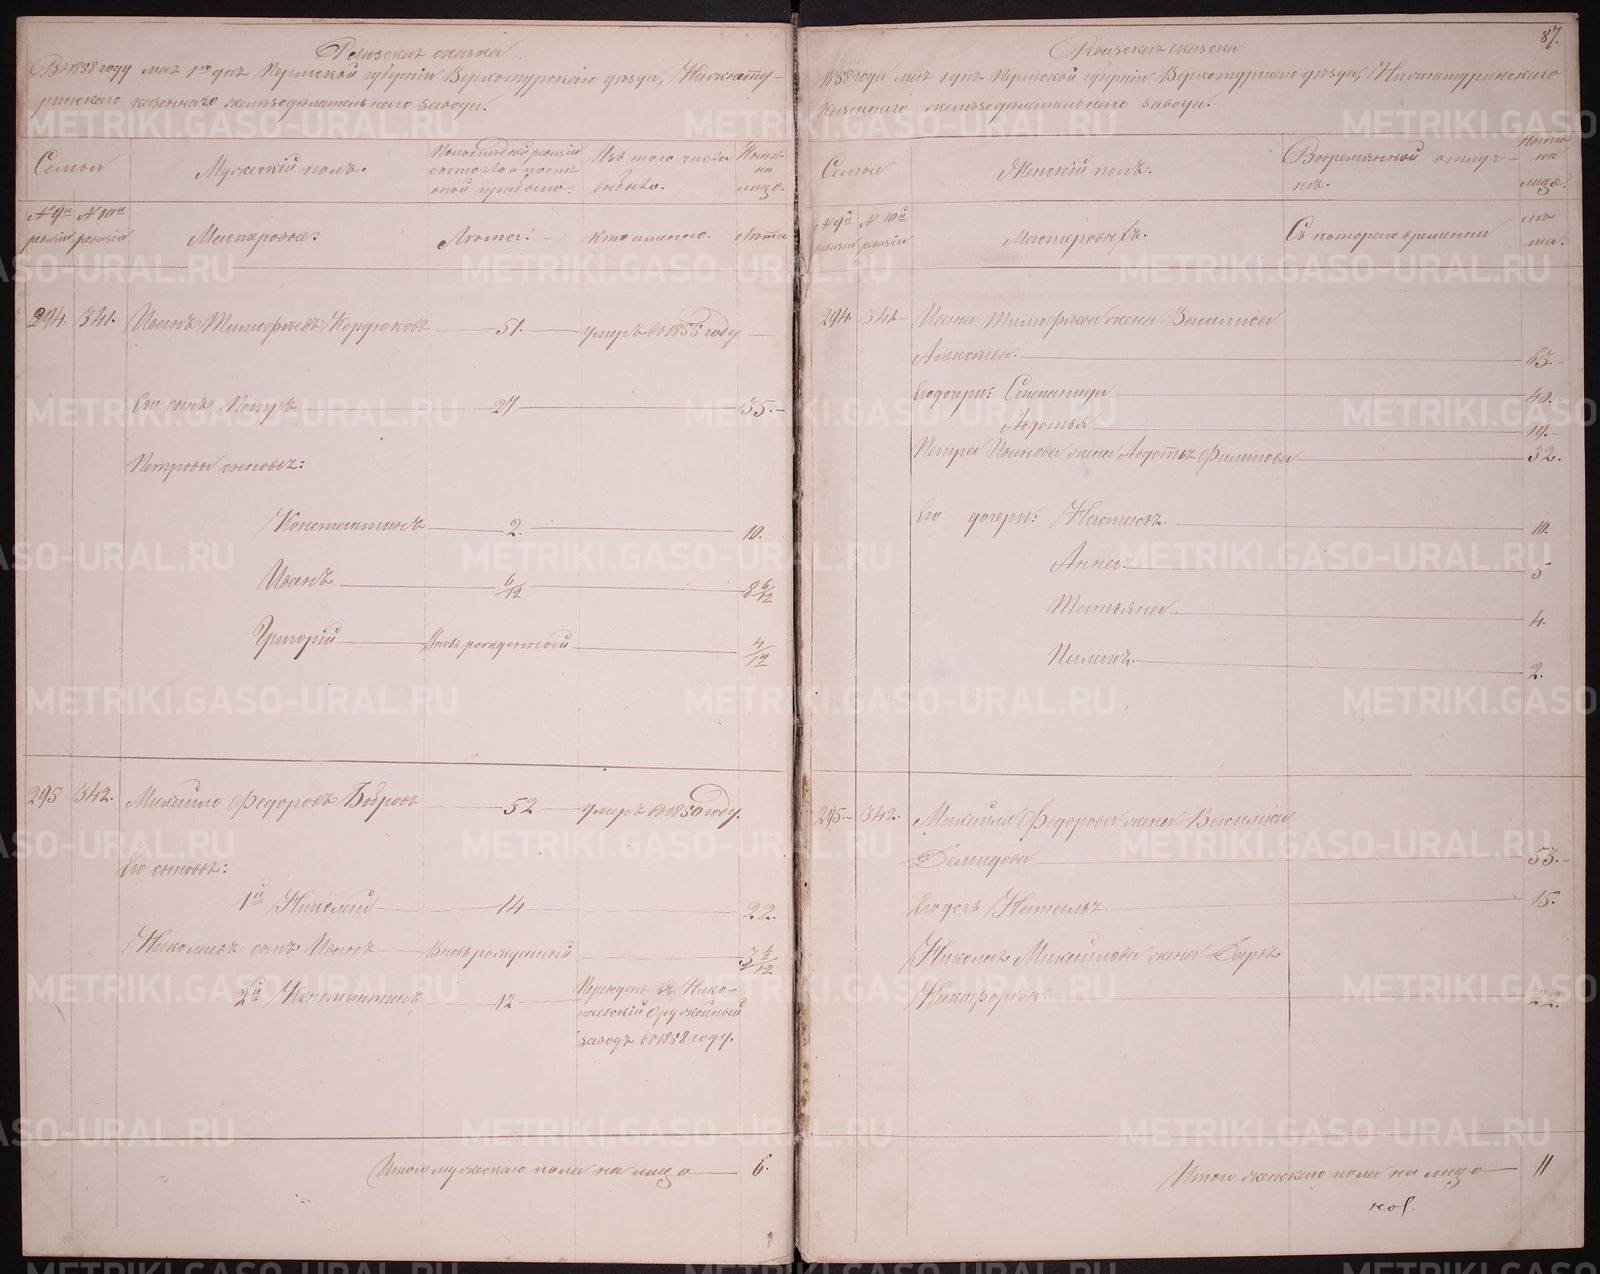 Ревизская сказка
1858 году мая 1го дня Пермской губернiи Верхотурскаго уѣзда, Нижнету-
ринскаго казеннаго желѣзодѣлательнаго завода.
Семьи
Мужескiй полъ.
По последней ревизiи состояло и после оной прибыло.
Изъ того числа выбыло.
Ныне на лицо.
№ 9й ревизiи
№ 10й ревизiи
Мастеровые:
Лѣта:
Кто именно.
Лѣта
294. 341. Иванъ Тимофѣевъ Кордюковъ 51. умеръ въ 1855 году
Его сынъ Петръ 27 35.
Петровы сыновья:
Константинъ 2. 10.
Иванъ 6/12 8 6/12
Григорiй Вновь рожденный 4/12
295 342. Михайло Федоровъ Бобровъ 52 умеръ въ 1850 году.
Его сыновья:
1й Николай 14 22.
Николаевъ сынъ Иванъ Вновь рожденный 3 1/12
2й Константинъ 12 Переведенъ въ Нико-
лаевскiй Оружейный
заводъ въ 1858 году.
Итого мужескаго пола на лицо 6.
87.
Ревизская сказка
1858 года мая 1 дня Пермской губернiи Верхотурскаго уѣзда, Нижнетуринскаго
Казеннаго желѣзодѣлательнаго завода.
Семьи
Женскiй полъ.
Во временной отлуч-
кѣ.
Ныне на лицо.
№ 9й ревизiи
№ 10й ревизiи
Мастеровыхъ.
Съ котораго времени
лѣ-
та.
294. 341. Ивана Тимофѣева жена Василиса
Алексѣева. 63.
Его дочери: Степанида 40.
Авдотья 19.
Петра Иванова жена Авдотья Филипова 32.
Его дочери: Наталья. 10.
Анна. 5
Татьяна 4.
Пелагея. 2.
295 342. Михаила Федорова жена Василиса
Демидова 53.
Его дочь Наталья 15.
Николая Михайлова жена Дарья
Никифорова. 22.
Итого женскаго пола на лицо 11
METRIKI.GASO-URAL.RU